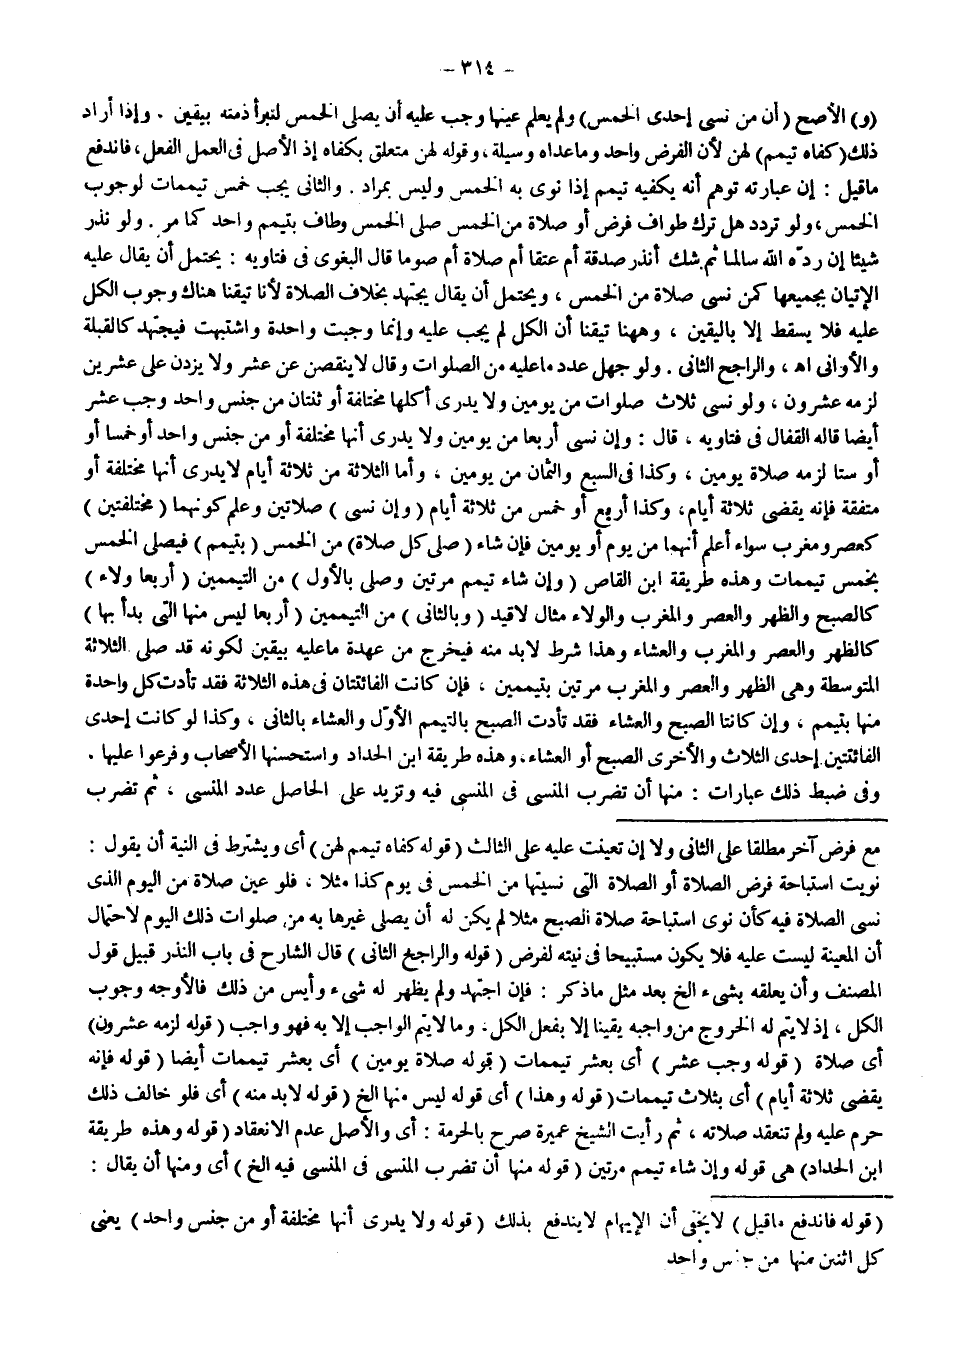 - ٣١٤ -
(و) الأصح (أن من نسى إحدى الخمس) ولم يعلم عينها وجب عليه أن يصلى الخمس لتبرأ ذمته بيقين . وإذا أراد
ذلك (كفاه تيمم) لهن لأن الفرض واحد وماعداه وسيلة ، وقوله لهن متعلق بكفاه إذ الأصل فى العمل الفعل ، فاندفع
ماقيل : إن عبارته توهم أنه يكفيه تيمم إذا نوى به الخمس وليس بمراد . والثانى يجب خمس تيممات لوجوب
الخمس ، ولو تردد هل ترك طواف فرض أو صلاة من الخمس صلى الخمس وطاف بتيمم واحد كما مر . ولو نذر
شيئا إن ردّه الله سالما ثم شك أنذر صدقة أم عتقا أم صلاة أم صوما قال البغوى فى فتاويه : يحتمل أن يقال عليه
الإتيان بجميعها كمن نسى صلاة من الخمس ، ويحتمل أن يقال يجتهد بخلاف الصلاة لأنا تيقنا هناك وجوب الكل
عليه فلا يسقط إلا باليقين ، وههنا تيقنا أن الكل لم يجب عليه وإنما وجبت واحدة واشتبهت فيجتهد كالقبلة
والأوانى اه ، والراجح الثانى . ولو جهل عدد ماعليه من الصلوات وقال لاينقصن عن عشر ولا يزدن على عشرين
لزمه عشرون ، ولو نسى ثلاث صلوات من يومين ولا يدرى أكلها مختلفة أو ثنتان من جنس واحد وجب عشر
أيضا قاله القفال فى فتاويه ، قال : وإن نسى أربعا من يومين ولا يدرى أنها مختلفة أو من جنس واحد أو خمسا أو
أو ستا لزمه صلاة يومين ، وكذا فى السبع والثمان من يومين ، وأما الثلاثة من ثلاثة أيام لايدرى أنها مختلفة أو
متفقة فإنه يقضى ثلاثة أيام ، وكذا أربع أو خمس من ثلاثة أيام (وإن نسى ) صلاتين وعلم كونهما ( مختلفتين )
كعصر ومغرب سواء أعلم أنهما من يوم أو يومين فإن شاء ( صلى كل صلاة) من الخمس ( بتيمم ) فيصلى الخمس
بخمس تيممات وهذه طريقة ابن القاص ( وإن شاء تيمم مرتين وصلى بالأول ) من التيممين ( أربعا ولاء )
كالصبح والظهر والعصر والمغرب والولاء مثال لاقيد ( وبالثانى ) من التيممين ( أربعا ليس منها التى بدأ بها )
كالظهر والعصر والمغرب والعشاء وهذا شرط لابد منه فيخرج من عهدة ماعليه بيقين لكونه قد صلى الثلاثة
المتوسطة وهى الظهر والعصر والمغرب مرتين بتيممين ، فإن كانت الفائتتان فى هذه الثلاثة فقد تأدت كل واحدة
منها بتيمم ، وإن كانتا الصبح والعشاء فقد تأدت الصبح بالتيمم الأوّل والعشاء بالثانى ، وكذا لو كانت إحدى
الفائتتين إحدى الثلاث والأخرى الصبح أو العشاء ، وهذه طريقة ابن الحداد واستحسنها الأصحاب وفرعوا عليها .
وفى ضبط ذلك عبارات : منها أن تضرب المنسى فى المنسى فيه وتزيد على الحاصل عدد المنسى ، ثم تضرب
مع فرض آخر مطلقا على الثانى ولا إن تعينت عليه على الثالث ( قوله كفاه تيمم لهن ) أى ويشترط فى النية أن يقول :
نويت استباحة فرض الصلاة أو الصلاة التى نسيتها من الخمس فى يوم كذا مثلا ، فلو عين صلاة من اليوم الذى
نسى الصلاة فيه كأن نوى استباحة صلاة الصبح مثلا لم يكن له أن يصلى غيرها به من صلوات ذلك اليوم لاحتمال
أن المعينة ليست عليه فلا يكون مستبيحا فى نيته لفرض ( قوله والراجح الثانى ) قال الشارح فى باب النذر قبيل قول
المصنف وأن يعلقه بشىء الخ بعد مثل ماذكر : فإن اجتهد ولم يظهر له شىء وأيس من ذلك فالأوجه وجوب
الكل ، إذ لايتم له الخروج من واجبه يقينا إلا بفعل الكل ، وما لايتم الواجب إلا به فهو واجب ( قوله لزمه عشرون)
أى صلاة ( قوله وجب عشر ) أى بعشر تيممات ( قوله صلاة يومين ) أى بعشر تيممات أيضا ( قوله فإنه
يقضى ثلاثة أيام ) أى بثلاث تيممات ( قوله وهذا ) أى قوله ليس منها الخ ( قوله لابد منه ) أى فلو خالف ذلك
حرم عليه ولم تنعقد صلاته ، ثم رأيت الشيخ عميرة صرح بالحرمة : أى والأصل عدم الانعقاد ( قوله وهذه طريقة
ابن الحداد) هى قوله وإن شاء تيمم مرتين ( قوله منها أن تضرب المنسى فى المنسى فيه الخ ) أى ومنها أن يقال :
( قوله فاندفع ماقيل ) لايخفى أن الإيهام لايندفع بذلك ( قوله ولا يدرى أنها مختلفة أو من جنس واحد ) يعنى
كل اثنين منها من جنس واحد